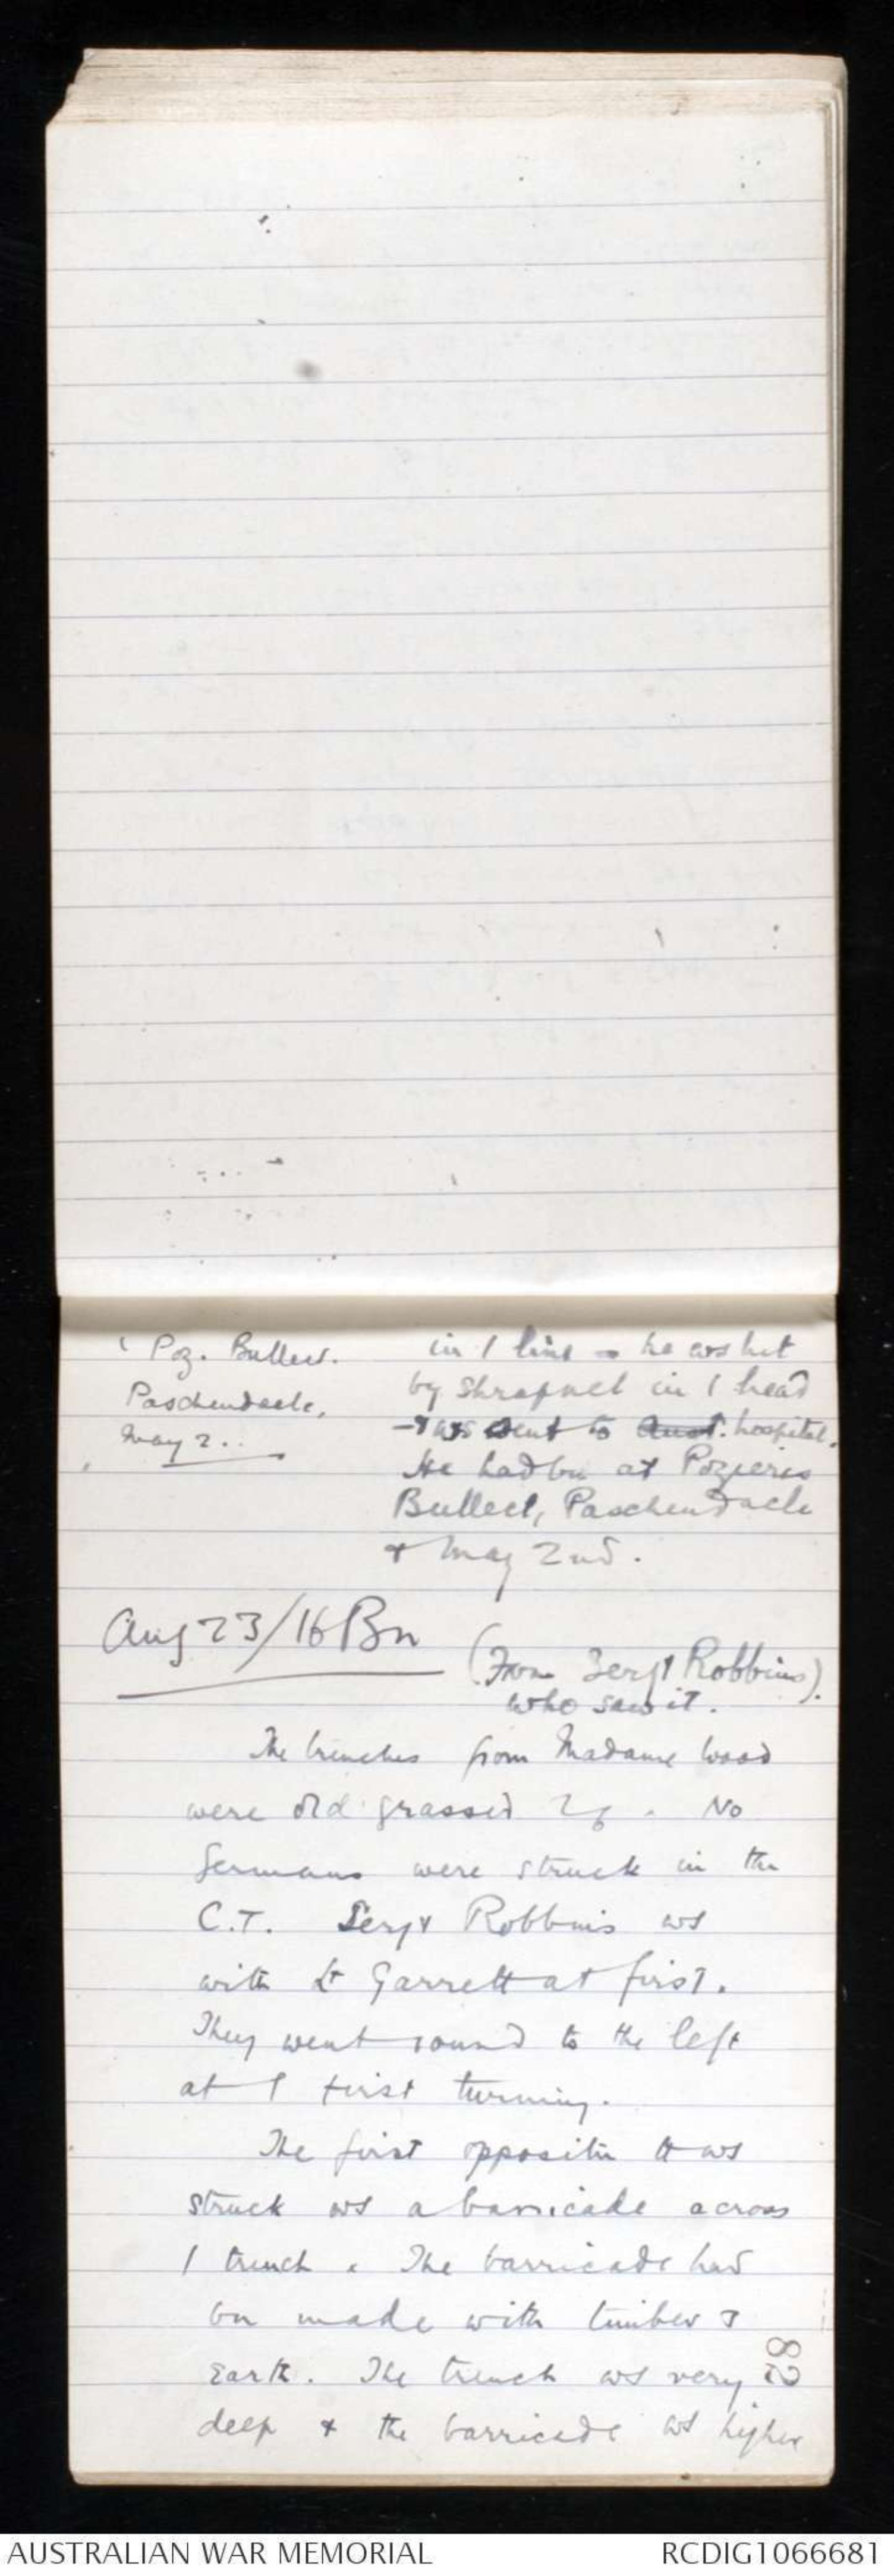 Poz. Bullect.
Paschendaele,
May 2..
in / line – he ws hit
by shrapnel in / head
– & ws sent to Aust. hospital.
He had bn at Pozieres
Bullect, Paschendaele
& May 2nd.
Aug 23/16 Bn
(From Sergt Robbins).
who saw it.
The trenches from Madame Wood
were old grassed. No
Germans were struck in the
C.T. Sergt Robbins ws
with Lt Garrett at first.
They went round to the left
at / first turning.
The first oppositn tt ws
struck ws a barricade across
/ trench. The barricade had
bn made with timber &
Earth. The trench ws very
deep & the barricade ws higher
82
AUSTRALIAN WAR MEMORIAL
RCDIG1066681